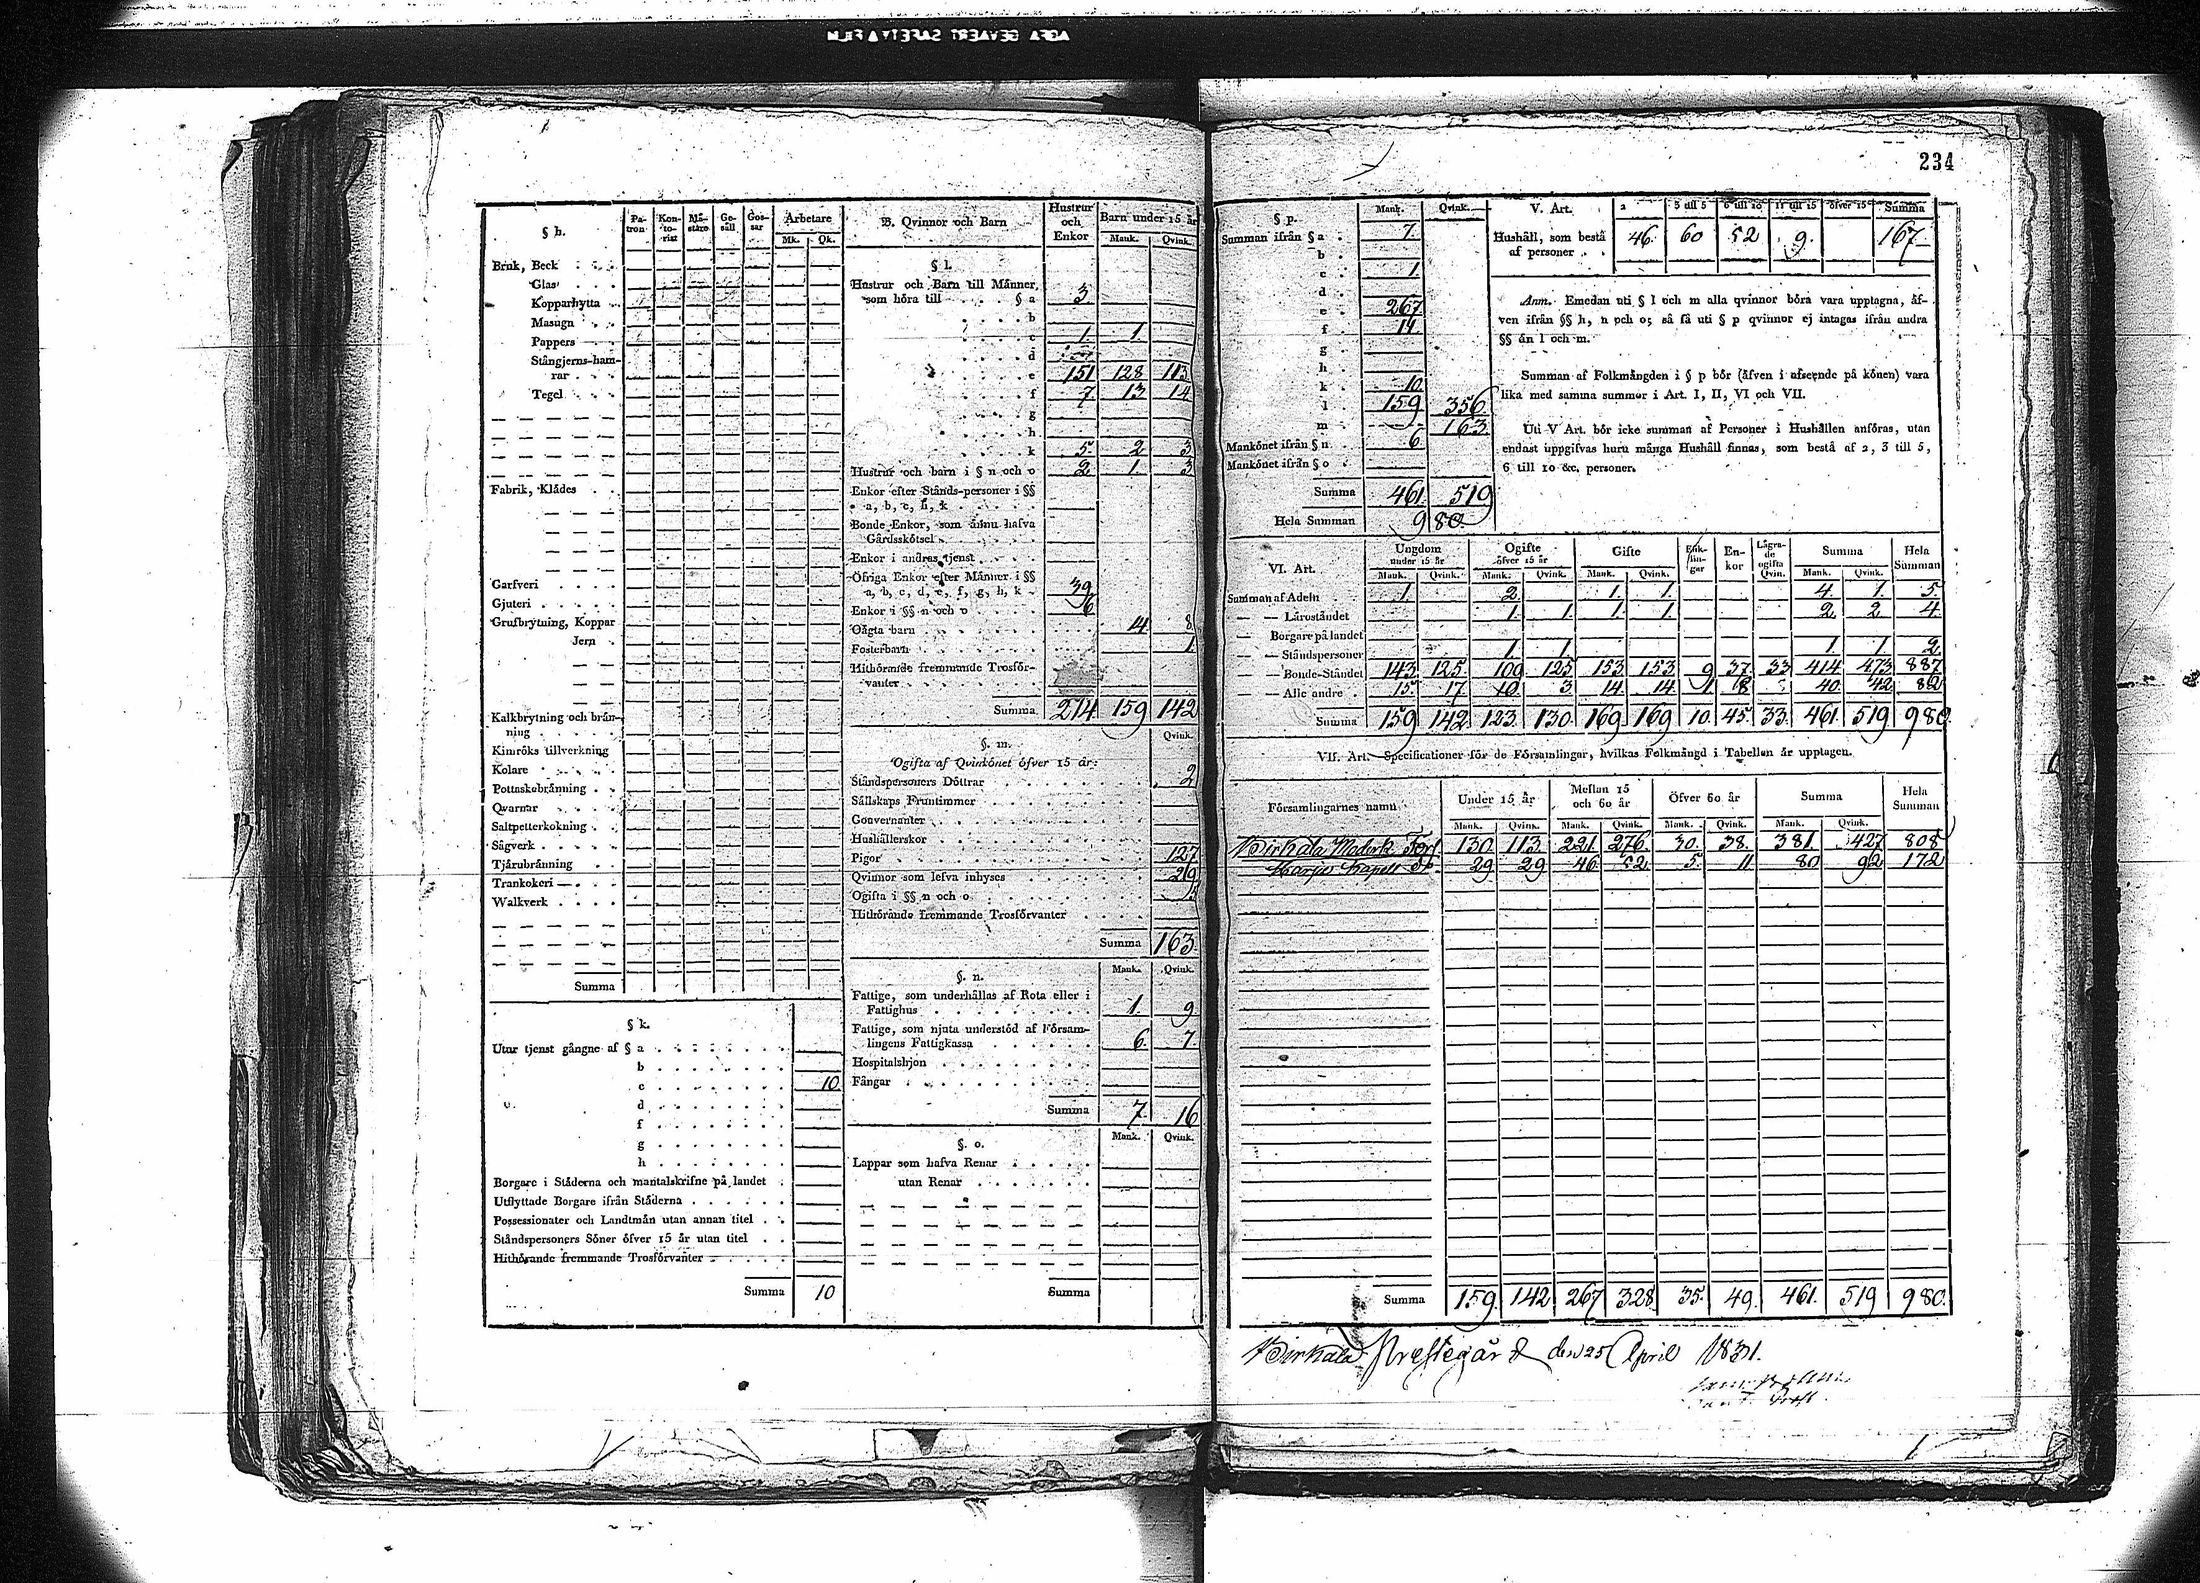 AGFA GEVAERT SAFETY FILM
234
§ h.
Pa-tron Kon-to-rist Mä-stare Ge-säll Gos-sar Arbetare
Mk. Qk.
Bruk, Beck
Glas
Kopparhytta
Masugn
Pappers
Stångjerns-ham-
rar
Tegel
Fabrik, Klädes
Garfveri
Gjuteri
Grufbrytning, Koppar
Jern
Kalkbrytning och brän-
ning
Kimröks tillverkning
Kolare
Pottaskebränning
Qvarnar
Saltpetterkokning
Sågverk
Tjärubränning
Trankokeri
Walkverk
Summa
§ k.
Utur tjenst gångne af § a
b
c 10
d
f
g
h
Borgare i Städerna och mantalskrifne på landet
Utflyttade Borgare ifrån Städerna
Possessionater och Landtmän utan annan titel
Ståndspersoners Söner öfver 15 år utan titel
Hithörande fremmande Trosförvanter
Summa 10
B. Qvinnor och Barn Hustrur och Enkor Barn under 15 år
Mank. Qvink.
§ l.
Hustrur och Barn till Männer,
som höra till § a 3
b
c 1. 1.
d
e 151 128 113
f 7. 13 14
g
h
k 5. 2 3
Hustrur och barn i § n och o 2 1. 3
Enkor efter Stånds-personer i §§
a, b, c, h, k
Bonde Enkor, som ännu hafva
Gårdsskötsel
Enkor i andras tjenst
Öfriga Enkor efter Männer i §§
a, b, c, d, e, f, g, h, k 39
Enkor i §§ n och o 6
Oägta barn 14 8
Fosterbarn 1.
Hithörande fremmande Trosför-
vanter
Summa 214 159 142
§. m. Qvink.
Ogifta af Qvinkönet öfver 15 år:
Ståndspersoners Döttrar 2
Sällskaps Fruntimmer
Gouvernanter
Hushållerskor
Pigor 127
Qvinnor som lefva inhyses
Ogifta i §§ n och o
Hithörande fremmande Trosförvanter
Summa 163.
§. n. Mank. Qvink.
Fattige, som underhållas af Rota eller i
Fattighus 1. 9
Fattige, som njuta understöd af Försam-
lingens Fattigkassa 6. 7.
Hospitalshjon
Fångar
Summa 7. 16
§. o. Mank. Qvink.
Lappar som hafva Renar
utan Renar
Summa
§ p. Mank. Qvink.
Summan ifrån § a 7.
b
c 1.
d
e 267
f 11.
g
h
k 10.
l 159 356
m 163.
Mankönet ifrån § n 6.
Mankönet ifrån § o
Summa 461. 519
Hela Summan 980.
V. Art. 2 3 till 5 6 till 10 11 till 15 öfver 15 Summa
Hushåll, som bestå
af personer 46. 60 52 9. 167
Anm. Emedan uti § l och m alla qvinnor böra vara upptagna, äf-
ven ifrån §§ h, n och o; så få uti § p qvinnor ej intagas ifrån andra
§§ än l och m.
Summan af Folkmängden i § p bör (äfven i afseende på könen) vara
lika med samma summor i Art. I, II, VI och VII.
Uti V Art. bör icke summan af Personer i Hushållen anföras, utan
endast uppgifvas huru många Hushåll finnas, som bestå af 2, 3 till 5,
6 till 10 &c. personer.
VI. Art. Ungdom under 15 år Ogifte öfver 15 år Gifte Enk-lin-gar En-kor Lägra-de ogifta Qvin. Summa Hela Summan
Mank. Qvink. Mank. Qvink. Mank. Qvink. Mank. Qvink.
Summan af Adeln 1. 2. 1. 1. 4. 1. 5.
— — Läroståndet 1. 1. 1. 1. 2 2 4.
— Borgare på landet
— — Ståndspersoner 1. 1. 1. 1. 2
— Bonde-Ståndet 143. 125. 109. 125 153. 153 9 37. 33 414 473 887
— Alle andre 15. 17. 10. 3 14. 14. 1 8 40. 42 82
Summa 159 142 123. 130. 169 169 10. 45. 33. 461. 519 980.
VII. Art. Specificationer för de Församlingar, hvilkas Folkmängd i Tabellen är upptagen.
Församlingarnes namn Under 15 år Mellan 15 och 60 år Öfver 60 år Summa Hela Summan
Mank. Qvink. Mank. Qvink. Mank. Qvink. Mank. Qvink.
Birkala Moderk. Förs. 130. 113. 221. 276. 30. 38. 381. 427. 808
Harju Kapell 29. 29 46. 52. 5. 11 80 92 172
Summa 159. 142 267 328. 35. 49. 461. 519 980.
Birkala Prestegård den 25 April 1831.